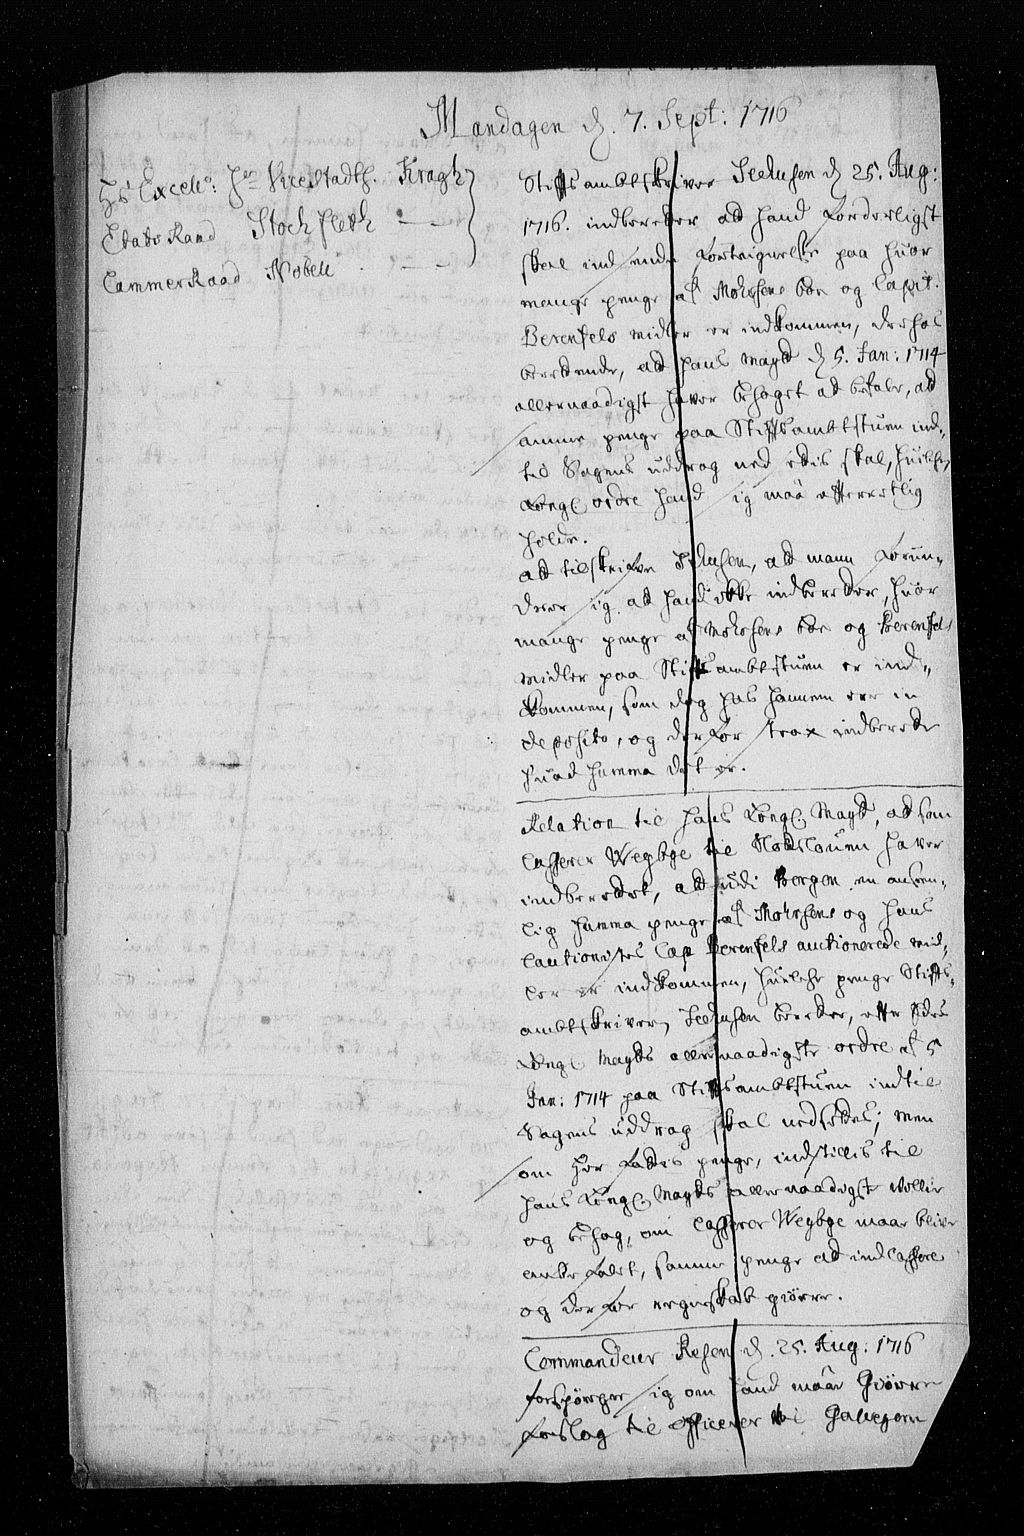 Mandagen d. 7. Sept: 1716
Hs Excell: Hr Vice Stadth. Kragh
Etats Raad Stockfleth
Cammer Raad Nobell
Stiftsambtskriver Seehusen d 25. Aug:
1716. indberetter at hand forderligst
skal indsende forteignelse paa huor
mange penge af Mohrsens boe og Capit.
Berenfels midler er indkommen, derhos
berettende, at hans Mayts d 5. Jan: 1714
allernaadigst haver behaget at befale, at
samme penge paa Stiftsambtstuen ind-
til Sagens uddrag nedsettis skal, huilchen
Kongl ordre hand sig maa efterrettlig
holde.
At tilskrifve Seehusen, at mann forun-
drer sig, at hand ikke indberetter, huor
mange penge af Mohrsens boe og Berenfels
midler paa Stiftsambtstuen er ind-
kommen, som dog hos hannem ere in
deposito, og derfor strax indberette
huad summa det er.
Relation til Hans Kongl. Mayt, at som
Casserer Weybye til Slotsloven haver
indberettet, at udi Bergen en ansee-
lig summa penge af Mohrsens og hans
Cautionistes Cap Berenfels auctionerede mid-
ler er indkommen, huilche penge Stifts-
ambtskriver Seehusen beretter, efter
Kongl Mayts allernaadigste ordre af 5
Jan: 1714 paa Stiftsambtstuen indtil
Sagens uddrag skal nedsettes; men
om penge, indstillis til
Hans Kongl. Mayts allernaadigst villie
og behag, om Casserer Weybye maae blive
anbefalet, samme penge at indcassere
og derfor regenskab giøre.
Commandeur Resen d. 25. Aug: 1716
forspørger sig om hand maae giøre
forslag til officerer til Galleyen